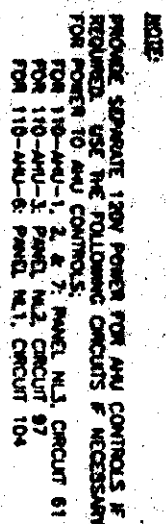 NOTE:
PROVIDE SEPARATE 120V POWER FOR AHU CONTROLS IF
REQUIRED. USE THE FOLLOWING CIRCUITS IF NECESSARY
FOR POWER TO AHU CONTROLS:
FOR 110-AHU-1, 2, & 7: PANEL NL3, CIRCUIT 61
FOR 110-AHU-3: PANEL NL2, CIRCUIT 97
FOR 110-AHU-6: PANEL NL1, CIRCUIT 104